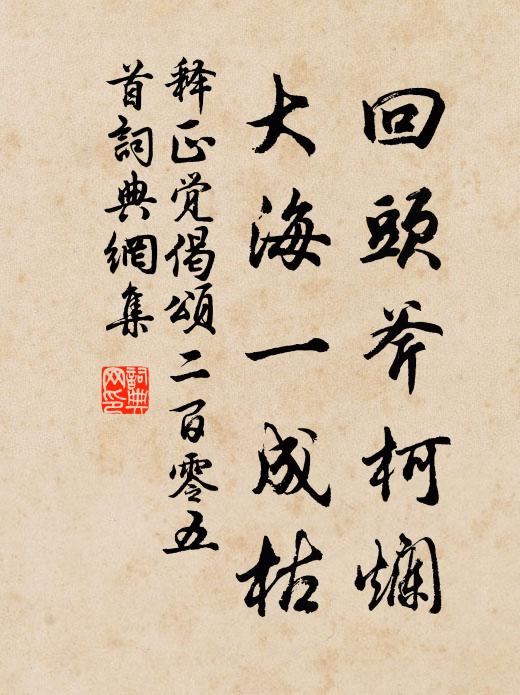 回頭斧柯爛
大海一成枯
释正覺偈頌二百零五
首詞典網集
詞典网印